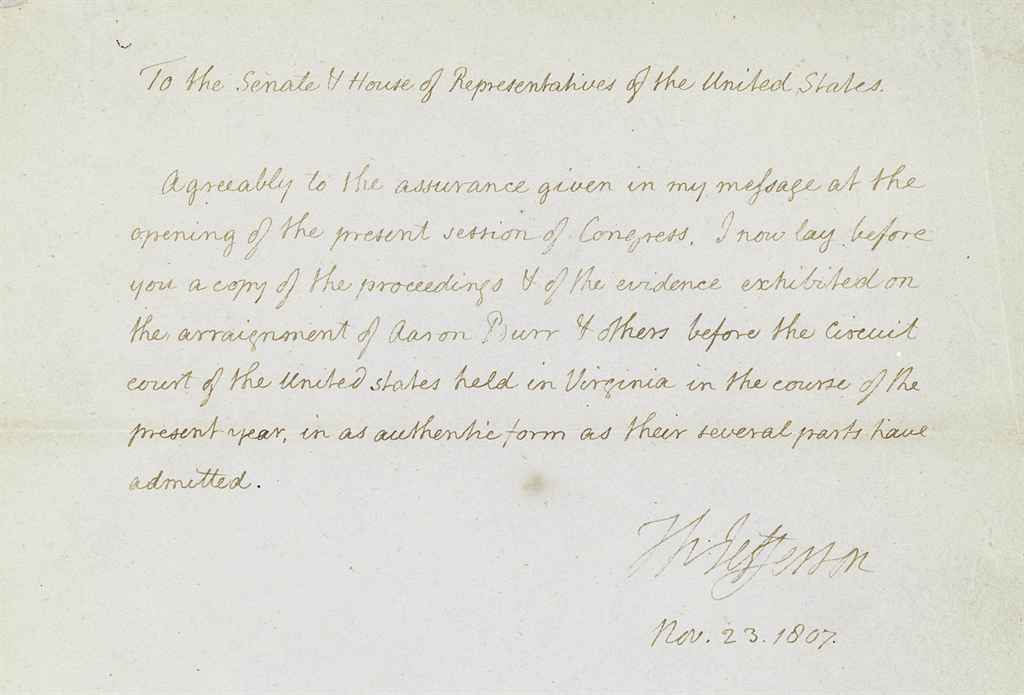 To the Senate & House of Representatives of the United States.
Agreeably to the assurance given in my meſsage at the
opening of the present session of Congress, I now lay before
you a copy of the proceedings & of the evidence exhibited on
the arraignment of Aaron Burr & others before the Circuit
court of the United States held in Virginia in the course of the
present year, in as authentic form as their several parts have
admitted.
Th: Jefferson
Nov. 23. 1807.